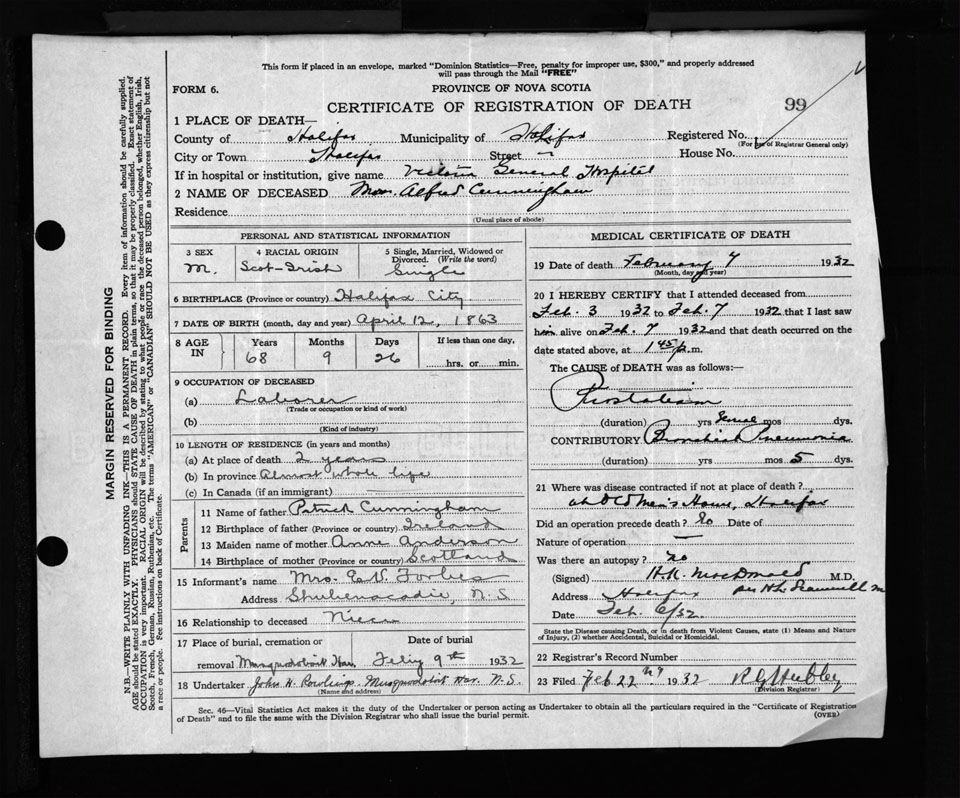 This form if placed in an envelope, marked "Dominion Statistics—Free, penalty for improper use, $300," and properly addressed
will pass through the Mail "FREE"
FORM 6. PROVINCE OF NOVA SCOTIA
CERTIFICATE OF REGISTRATION OF DEATH 99
1 PLACE OF DEATH—
County of Halifax Municipality of Halifax Registered No.
(For use of Registrar General only)
City or Town Halifax Street — House No.
If in hospital or institution, give name Victoria General Hospital
2 NAME OF DECEASED Alfred Cunningham
Residence
(Usual place of abode)
PERSONAL AND STATISTICAL INFORMATION
3 SEX 4 RACIAL ORIGIN 5 Single, Married, Widowed or
Divorced. (Write the word)
M. Scot-Irish Single
6 BIRTHPLACE (Province or country) Halifax City
7 DATE OF BIRTH (month, day and year) April 12, 1863
8 AGE IN Years Months Days If less than one day,
68 9 26 hrs. or min.
9 OCCUPATION OF DECEASED
(a) Laborer
(Trade or occupation or kind of work)
(b)
(Kind of industry)
10 LENGTH OF RESIDENCE (in years and months)
(a) At place of death 2 years
(b) In province Almost whole life
(c) In Canada (if an immigrant)
Parents
11 Name of father Patrick Cunningham
12 Birthplace of father (Province or country) Ireland
13 Maiden name of mother Anne Anderson
14 Birthplace of mother (Province or country) Scotland
15 Informant's name Mrs. E. V. Forbes
Address Shubenacadie, N.S
16 Relationship to deceased Niece
17 Place of burial, cremation or Date of burial
removal Musquodoboit Har. Feby 9th 1932
18 Undertaker John H. Rowlings Musquodoboit Har. N.S.
(Name and address)
MEDICAL CERTIFICATE OF DEATH
19 Date of death February 7 1932
(Month, day and year)
20 I HEREBY CERTIFY that I attended deceased from
Feb. 3 1932 to Feb. 7 1932 that I last saw
him alive on Feb. 7 1932 and that death occurred on the
date stated above, at 1 45 p.m.
The CAUSE of DEATH was as follows:—
Prostatism
(duration) yrs mos dys.
CONTRIBUTORY Bronchial Pneumonia
(duration) yrs mos 5 dys.
21 Where was disease contracted if not at place of death?
at Old Men's Home, Halifax
Did an operation precede death? No Date of
Nature of operation —
Was there an autopsy? No
(Signed) H.K. MacDonald M.D.
Address Halifax
Date Feb.
State the Disease causing Death, or in death from Violent Causes, state (1) Means and Nature
of Injury, (2) whether Accidental, Suicidal or Homicidal.
22 Registrar's Record Number
23 Filed Feb 22nd 1932
(Division Registrar)
Sec. 46—Vital Statistics Act makes it the duty of the Undertaker or person acting as Undertaker to obtain all the particulars required in the "Certificate of Registration
of Death" and to file the same with the Division Registrar who shall issue the burial permit.
(OVER)
MARGIN RESERVED FOR BINDING
N.B.—WRITE PLAINLY WITH UNFADING INK—THIS IS A PERMANENT RECORD. Every item of information should be carefully supplied.
AGE should be stated EXACTLY. PHYSICIANS should STATE CAUSE OF DEATH in plain terms, so that it may be properly classified. Exact statement of
OCCUPATION is very important. RACIAL ORIGIN will be described by stating to what people or race the deceased person belonged, whether English, Irish,
Scotch, French, German, Russian, Ruthenian, etc. The terms "AMERICAN" or "CANADIAN" SHOULD NOT BE USED as they express citizenship but not
a race or people. See instructions on back of Certificate.